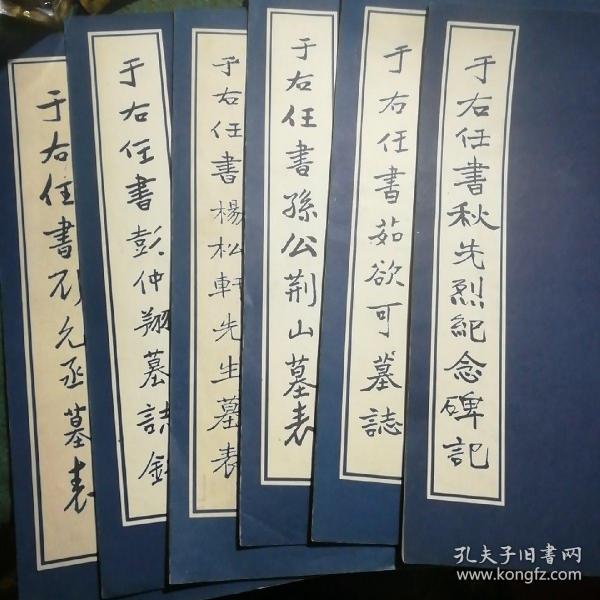 于右任書秋先烈紀念碑記
于右任書茹欲可墓誌
于右任書孫公荆山墓表
于右任書楊松軒先生墓表
于右任書彭仲翔墓誌銘
于右任書 允丞墓表
孔夫子旧书网
www.kongfz.com